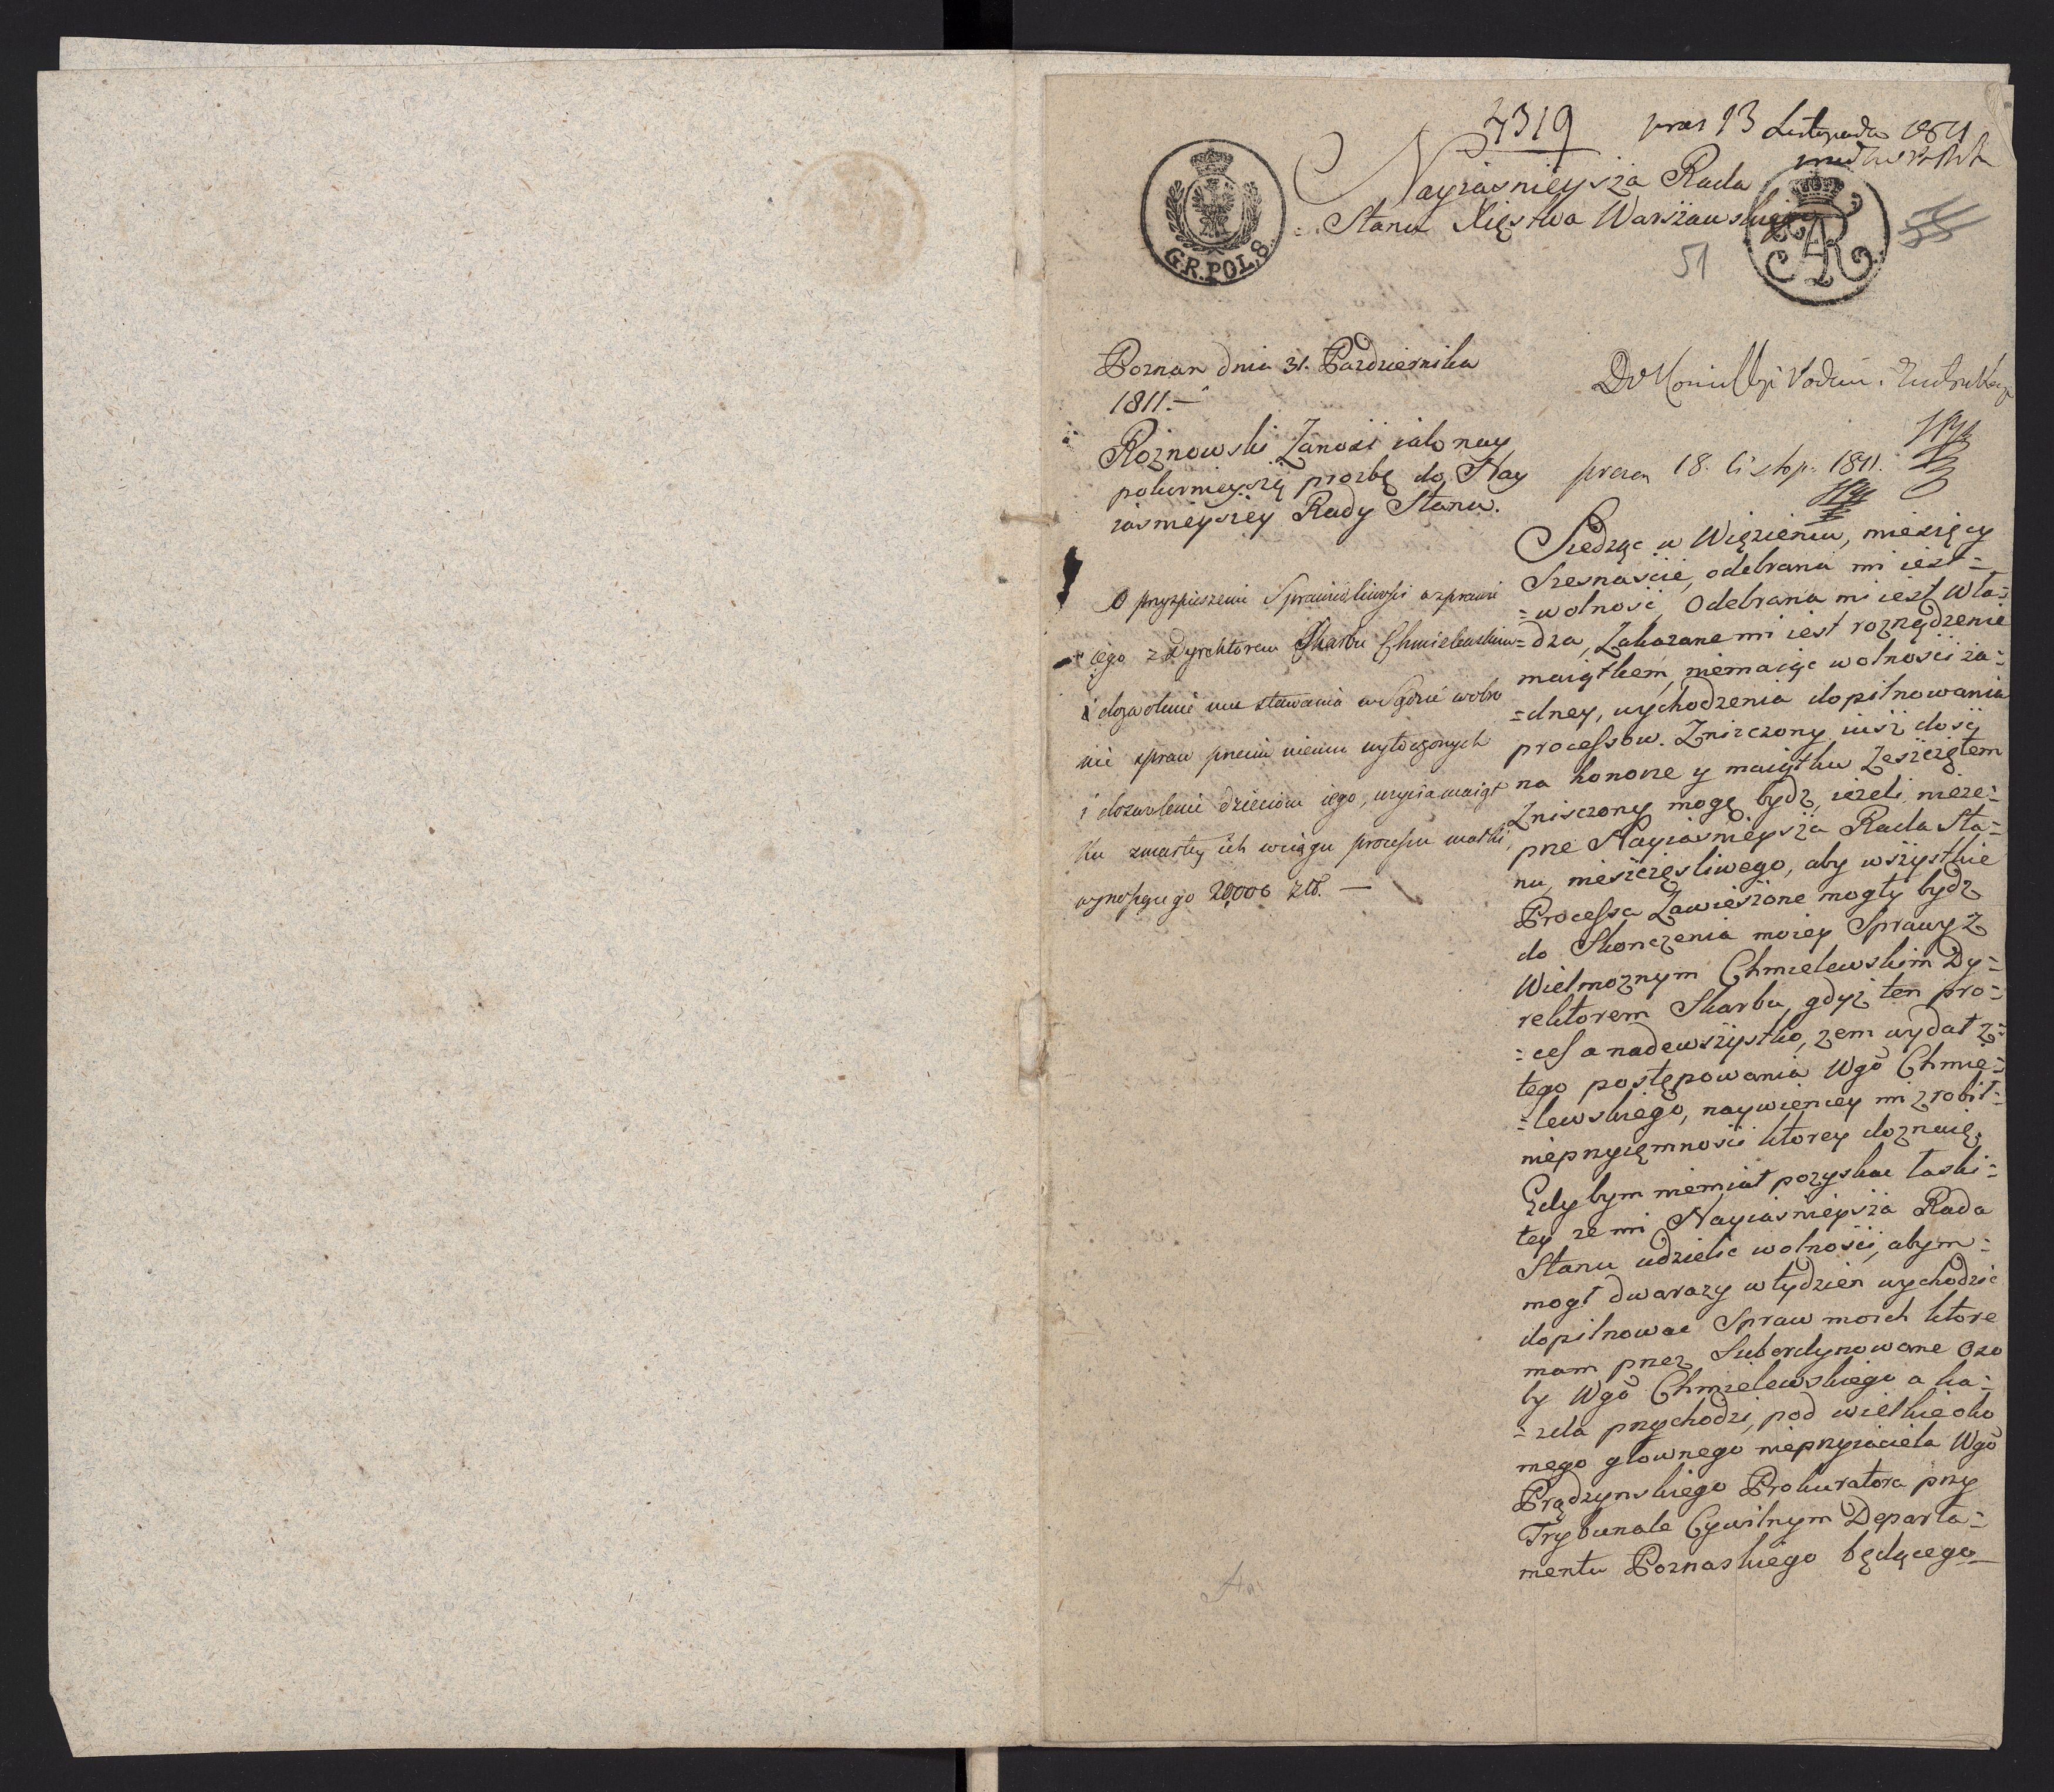 4319
praes 13 Listopada 1811
Nayiasnieysza Rada
Stanu Xięstwa Warszawskiego
G.R.POL.8.
AR
51
55
Poznan dnia 31. Pazdziernika
1811.—
Roznowski Zanosi iako nay
pokornieyszę prozbę do Nay
iasnieyszey Rady Stanu.
O przyspieszenie Sprawiedliwosci w sprawie
iego z Dyrektorem Skarbu Chmielewskim
i dozwolenie mu stawania w Sądzie w obro
nie spraw przeciw niemu wytoczonych
i dozwolenie dzieciom iego, uzycia maiąt
ku zmarłey ich wciągu processu matki,
wynoszącego 20,000 złł. —
Do
prezen 18. listop. 1811.
Siedząc w Więzieniu, miesięcy
Szesnaście, odebrana mi iest=
=wolność, Odebrana mi iest wła=
=dza, Zakazane mi iest rozrządzenie
maiątkem, niemaiąc wolności ża=
=dney, wychodzenia dopilnowania
processow. Znisczony iusz dosć
na honorze y maiątku Zesczętem
Znisczony mogę bydz, ieżeli nieze=
pne Nayiasnieysza Rada Sta=
nu, niesczęsliwego, aby wszystkie
Processa Zawieszone mogły bydz
do Skonczenia moiey Sprawy z
Wielmoznym Chmielewskim Dy=
rektorem Skarbu, gdyż ten pro=
=ces a nadewszystko, zem wydał z=
tego postępowania Wgo Chmie=
=lewskiego, naywiencey mi zrobił=
nieprzyiemnosci ktorey doznaię.
Gdy bym niemiał pozyskac łaski=
tey ze mi Nayiasnieysza Rada
Stanu udzielic wolności, abym=
mogł dwa razy w tydzien wychodzic
dopilnowac Spraw moich ktore
mam przez Subordynowane Oso
by Wgo Chmielewskiego a ka=
=zda przychodzi, pod wielkie oko
mego głownego nieprzyiaciela Wgo
Prądzynskiego Prokuratora przy
Trybunale Cywilnym Departa=
mentu Poznaskiego będącego